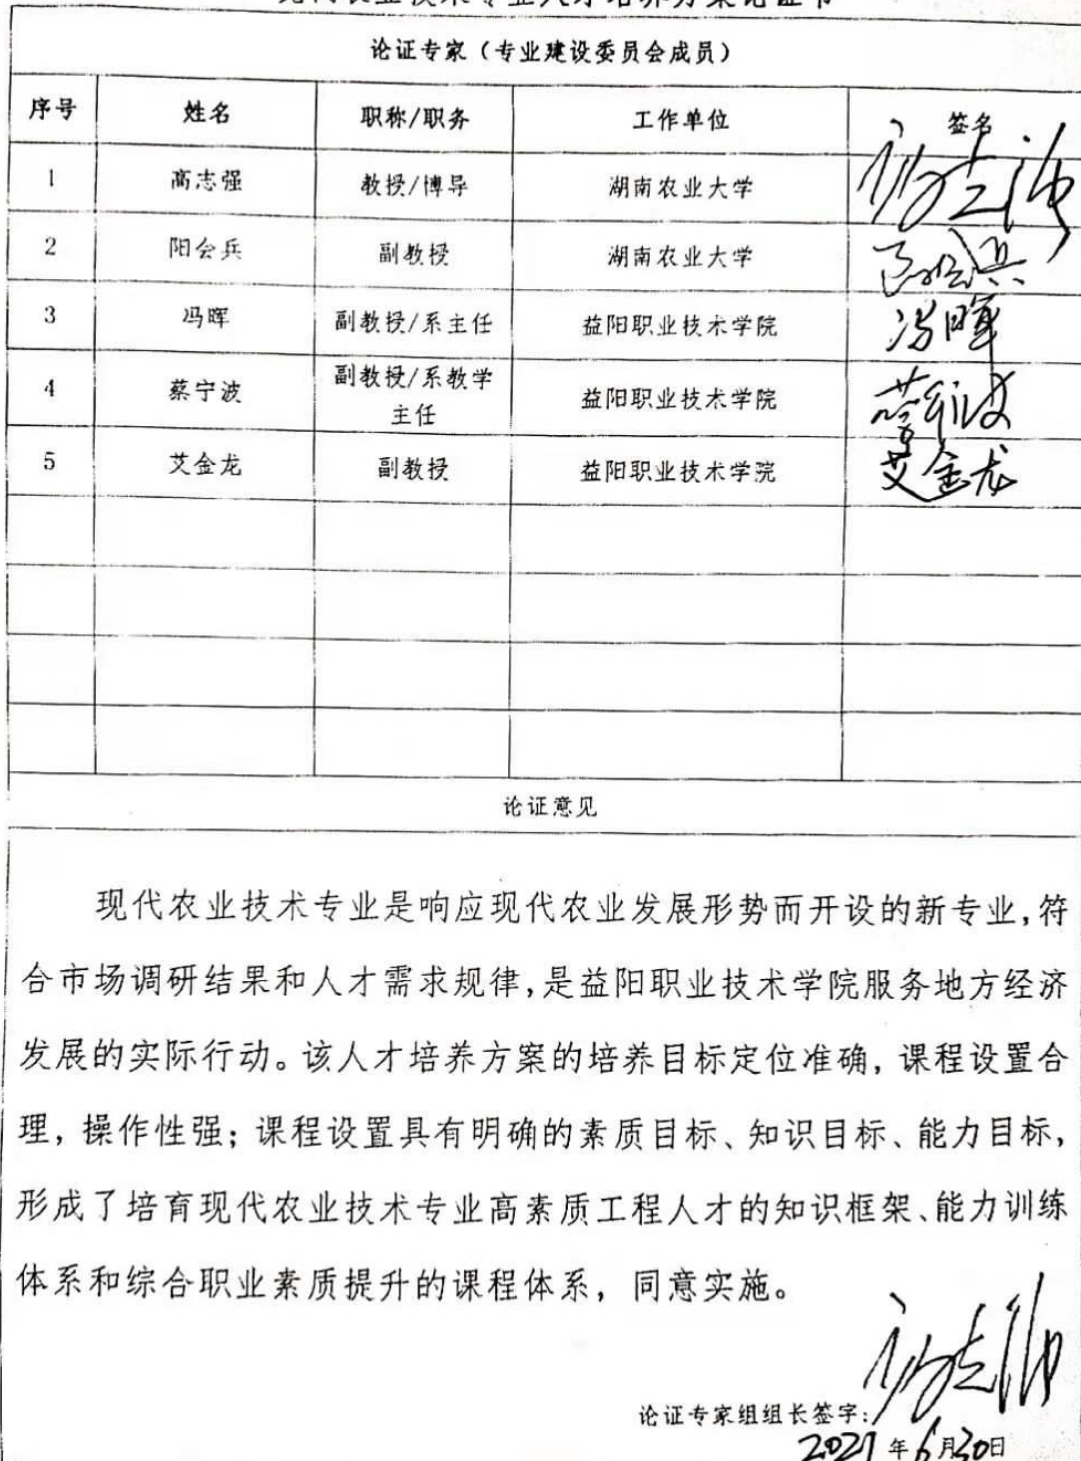 现代农业技术专业人才培养方案论证书
论证专家（专业建设委员会成员）
序号 姓名 职称/职务 工作单位 签名
1 高志强 教授/博导 湖南农业大学 高志强
2 阳会兵 副教授 湖南农业大学 阳会兵
3 冯晖 副教授/系主任 益阳职业技术学院 冯晖
4 蔡宁波 副教授/系教学
主任 益阳职业技术学院 蔡宁波
5 艾金龙 副教授 益阳职业技术学院 艾金龙
论证意见
现代农业技术专业是响应现代农业发展形势而开设的新专业,符
合市场调研结果和人才需求规律,是益阳职业技术学院服务地方经济
发展的实际行动。该人才培养方案的培养目标定位准确，课程设置合
理，操作性强；课程设置具有明确的素质目标、知识目标、能力目标，
形成了培育现代农业技术专业高素质工程人才的知识框架、能力训练
体系和综合职业素质提升的课程体系，同意实施。
论证专家组组长签字: 高志强
2021年6月30日